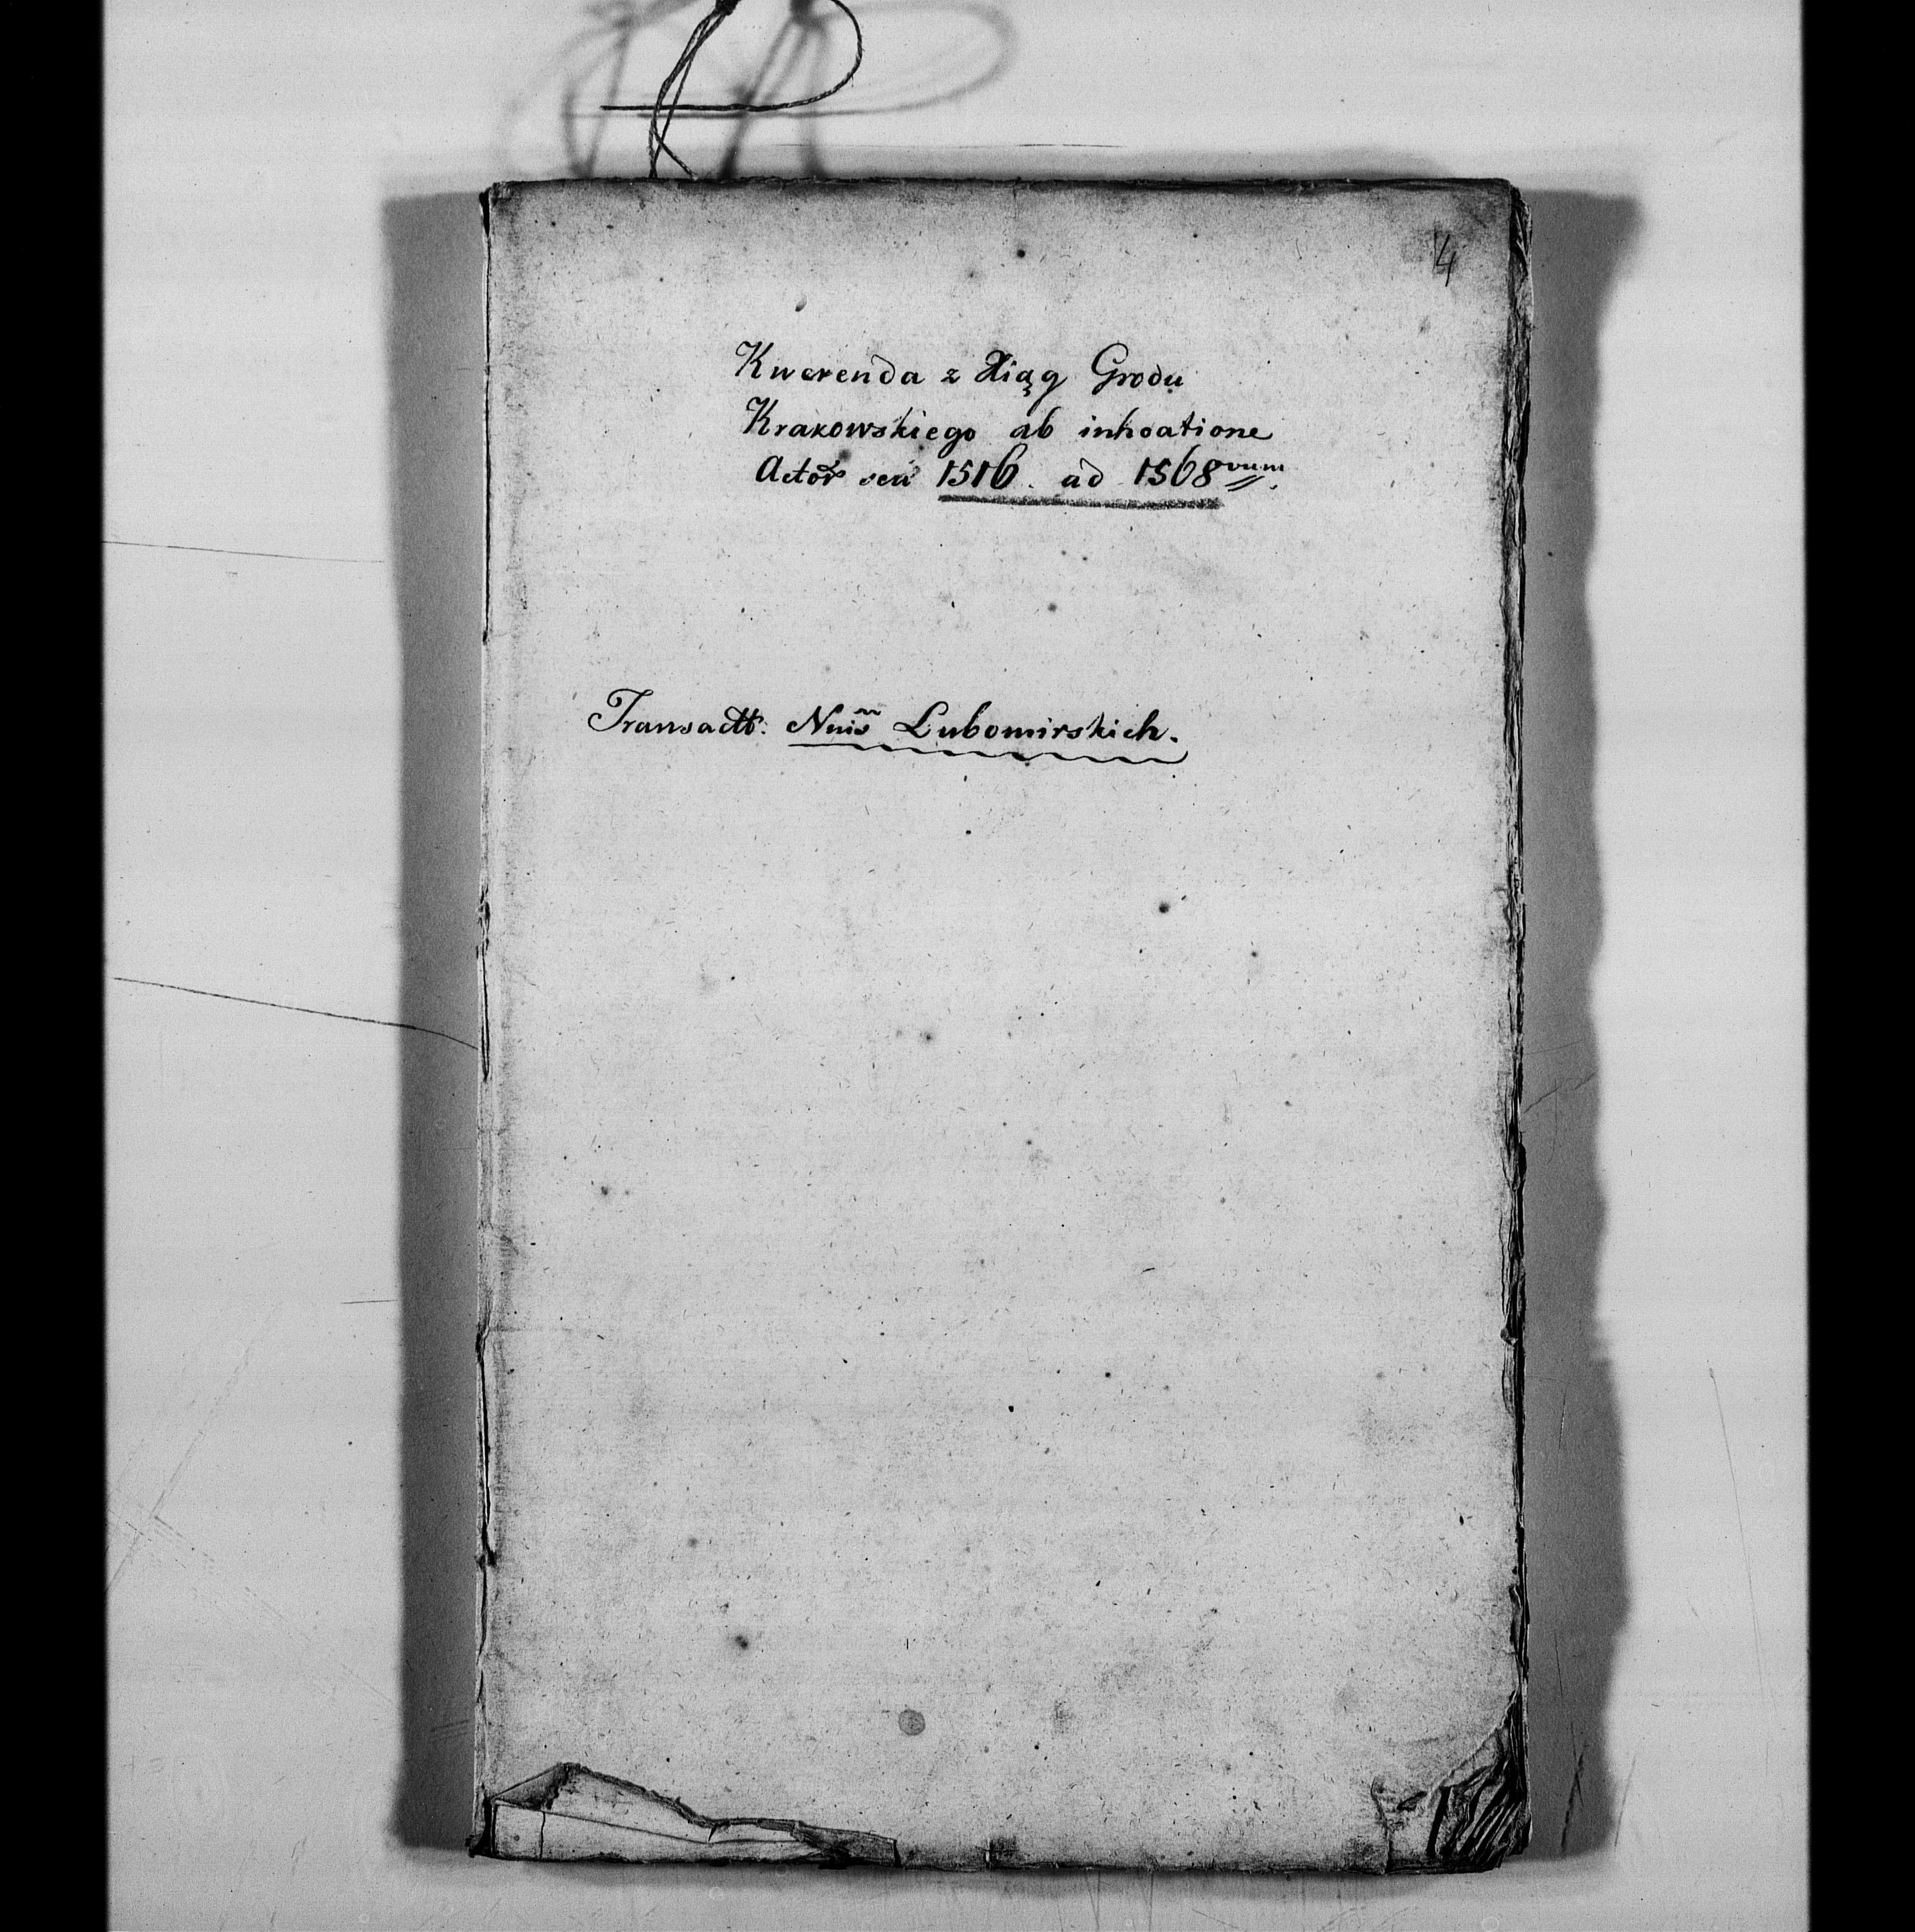 4
Kwerenda z Xiąg Grodu
Krakowskiego ab inhoatione
Actor̃ seu 1516. ad 1568vum.
Transactt: Nnis Lubomirskich.